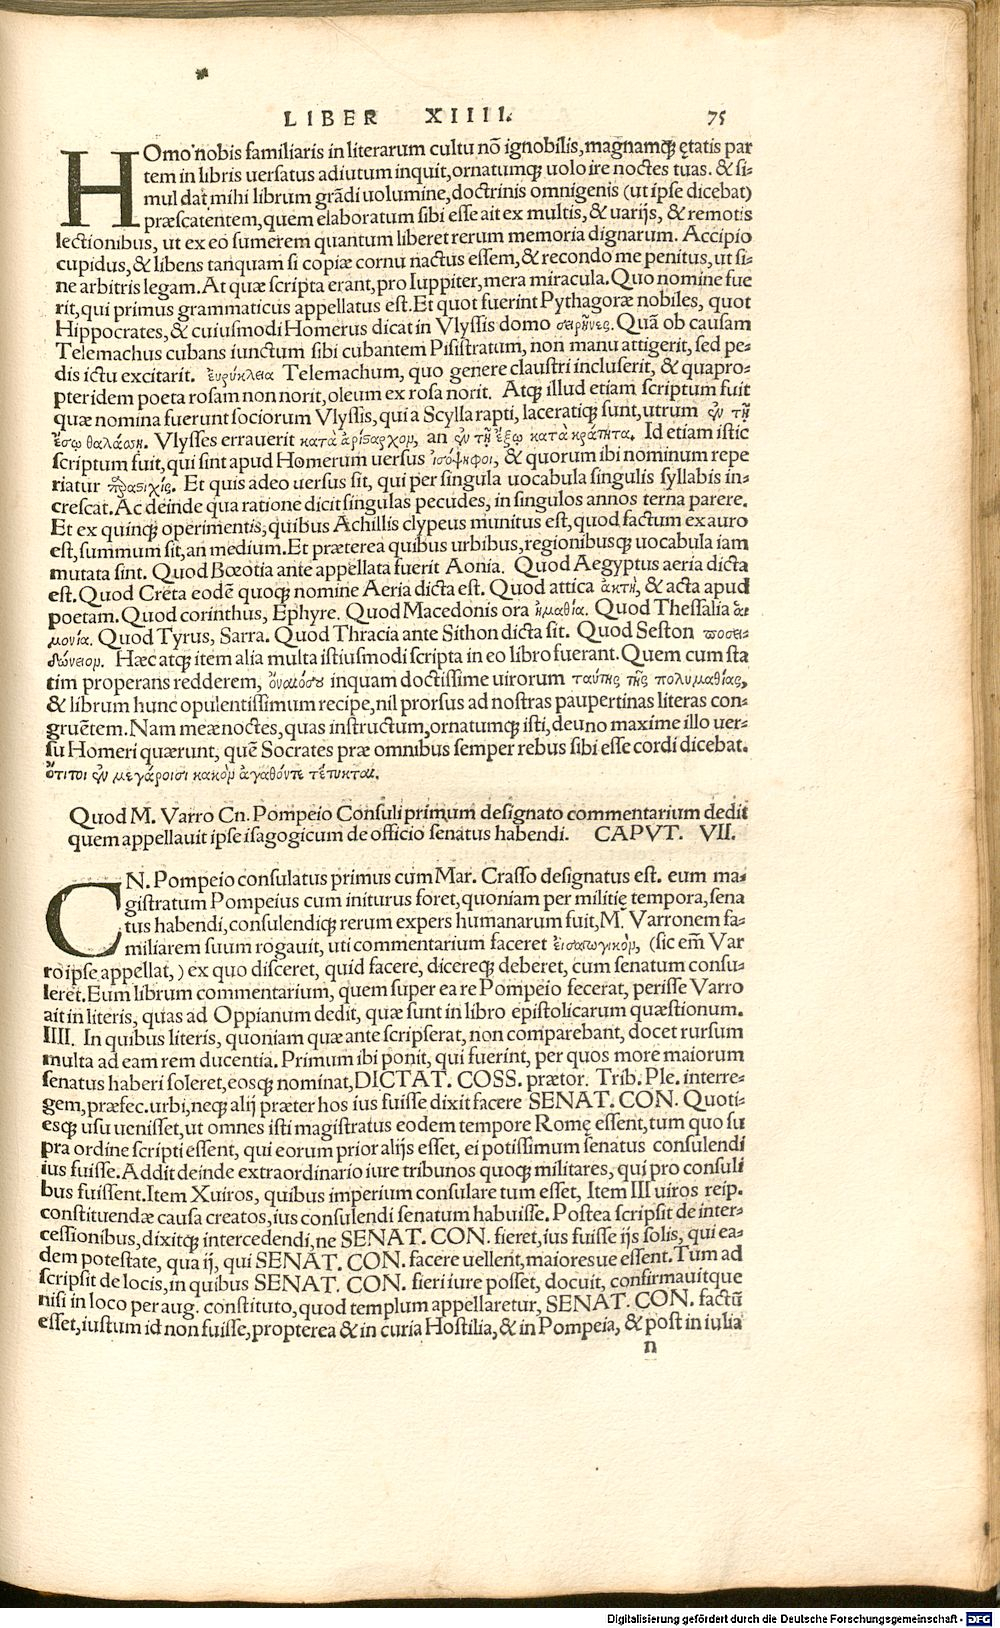 LIBER XIIII. 75
HOmo nobis familiaris in literarum cultu nõ ignobilis, magnamq; ętatis par
tem in libris uersatus adiutum inquit, ornatumq; uolo ire noctes tuas. & si-
mul dat mihi librum grãdi uolumine, doctrinis omnigenis (ut ipse dicebat)
præscatentem, quem elaboratum sibi esse ait ex multis, & uarijs, & remotis
lectionibus, ut ex eo sumerem quantum liberet rerum memoria dignarum. Accipio
cupidus, & libens tanquam si copiæ cornu nactus essem, & recondo me penitus, ut si-
ne arbitris legam. At quæ scripta erant, pro Iuppiter, mera miracula. Quo nomine fue
rit, qui primus grammaticus appellatus est. Et quot fuerint Pythagoræ nobiles, quot
Hippocrates, & cuiusmodi Homerus dicat in Vlyssis domo σειρῆνες. Quã ob causam
Telemachus cubans iunctum sibi cubantem Pisistratum, non manu attigerit, sed pe-
dis ictu excitarit. ἐυρύκλεια Telemachum, quo genere claustri incluserit, & quapro-
pter idem poeta rosam non norit, oleum ex rosa norit. Atq; illud etiam scriptum fuit
quæ nomina fuerunt sociorum Vlyssis, qui a Scylla rapti, laceratiq; sunt, utrum ἐν τῇ
ἔσω θαλάσσῃ. Vlysses errauerit κατὰ ἀρίσαρχομ, an ἐν τῇ ἔξω κατὰ κράτητα. Id etiam istic
scriptum fuit, qui sint apud Homerum uersus ἰσόψηφοι, & quorum ibi nominum repe
riatur Et quis adeo uersus sit, qui per singula uocabula singulis syllabis in-
crescat. Ac deinde qua ratione dicit singulas pecudes, in singulos annos terna parere.
Et ex quinq; operimentis, quibus Achillis clypeus munitus est, quod factum ex auro
est, summum sit, an medium. Et præterea quibus urbibus, regionibusq; uocabula iam
mutata sint. Quod Bœotia ante appellata fuerit Aonia. Quod Aegyptus aeria dicta
est. Quod Creta eodẽ quoq; nomine Aeria dicta est. Quod attica ἀκτὴ, & acta apud
poetam. Quod corinthus, Ephyre. Quod Macedonis ora ἠμαθία. Quod Thessalia ἁι
μονία. Quod Tyrus, Sarra. Quod Thracia ante Sithon dicta sit. Quod Seston ποσει-
δώνειομ. Hæc atq; item alia multa istiusmodi scripta in eo libro fuerant. Quem cum sta
tim properans redderem, inquam doctissime uirorum ταύτης τῆς πολυμαθίας,
& librum hunc opulentissimum recipe, nil prorsus ad nostras paupertinas literas con-
gruẽtem. Nam meæ noctes, quas instructum, ornatumq; isti, de uno maxime illo uer-
su Homeri quærunt, quẽ Socrates præ omnibus semper rebus sibi esse cordi dicebat.
ὅτιτοι ἐν μεγάροισι κακὸμ ἀγαθόντε τέτυκται.
Quod M. Varro Cn. Pompeio Consuli primum designato commentarium dedit
quem appellauit ipse isagogicum de officio senatus habendi. CAPVT. VII.
CN. Pompeio consulatus primus cum Mar. Crasso designatus est. eum ma-
gistratum Pompeius cum initurus foret, quoniam per militię tempora, sena
tus habendi, consulendiq; rerum expers humanarum fuit, M. Varronem fa-
miliarem suum rogauit, uti commentarium faceret ἐισαγωγικὸμ, (sic em̃ Var
ro ipse appellat,) ex quo disceret, quid facere, dicereq; deberet, cum senatum consu-
leret. Eum librum commentarium, quem super ea re Pompeio fecerat, perisse Varro
ait in literis, quas ad Oppianum dedit, quæ sunt in libro epistolicarum quæstionum.
IIII. In quibus literis, quoniam quæ ante scripserat, non comparebant, docet rursum
multa ad eam rem ducentia. Primum ibi ponit, qui fuerint, per quos more maiorum
senatus haberi soleret, eosq; nominat, DICTAT. COSS. prætor. Trib. Ple. interre-
gem, præfec. urbi, neq; alij præter hos ius fuisse dixit facere SENAT. CON. Quoti-
esq; usu uenisset, ut omnes isti magistratus eodem tempore Romę essent, tum quo su
pra ordine scripti essent, qui eorum prior alijs esset, ei potissimum senatus consulendi
ius fuisse. Addit deinde extraordinario iure tribunos quoq; militares, qui pro consuli
bus fuissent. Item Xuiros, quibus imperium consulare tum esset, Item III uiros reip.
constituendæ causa creatos, ius consulendi senatum habuisse. Postea scripsit de inter-
cessionibus, dixitq; intercedendi, ne SENAT. CON. fieret, ius fuisse ijs solis, qui ea-
dem potestate, qua ij, qui SENAT. CON. facere uellent, maioresue essent. Tum ad
scripsit de locis, in quibus SENAT. CON. fieri iure posset, docuit, confirmauitque
nisi in loco per aug. constituto, quod templum appellaretur, SENAT. CON. factũ
esset, iustum id non fuisse, propterea & in curia Hostilia, & in Pompeia, & post in iulia
n
Digitalisierung gefördert durch die Deutsche Forschungsgemeinschaft - DFG